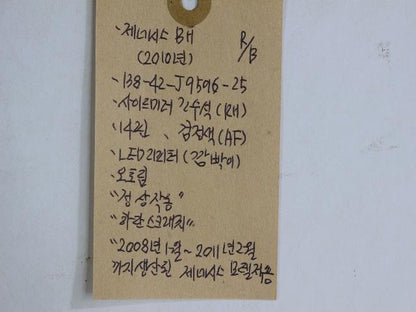 ·제네시스 BH
R/B
(2010년)
·138-42-J9596-25
·사이드미러 조수석 (RH)
·14핀 、 검정색 (AF)
·LED리피터 (깜빡이)
·오토폴
"정상작동"
"하단스크래치"
"2008년 1월~2011년 2월
까지생산된 제네시스 모델적용